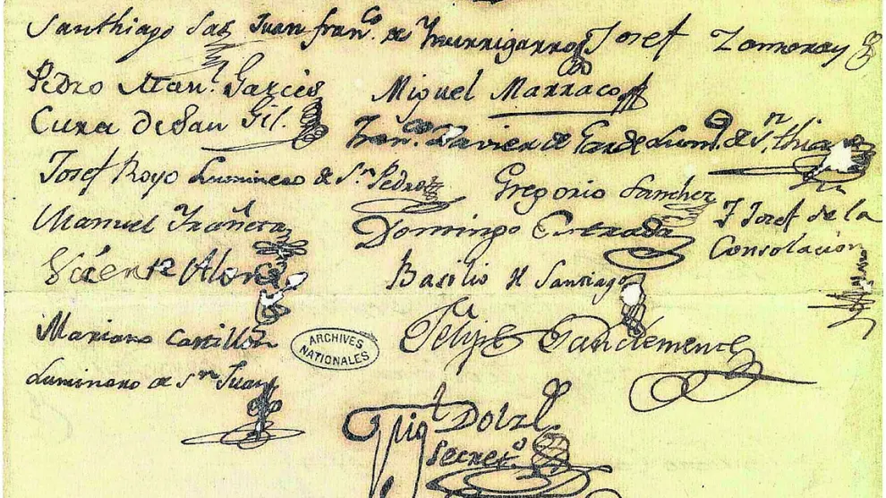 Santhiago Sas Juan fran.co de Yturrigarro Josef Zamoray
Pedro Man.l Garcés Miguel Marraco
Cura de San Gil. Fran.co Xavier de
Josef Royo Luminero de S.n Pedro Gregorio Sanchez
Manuel Yrañeta Domingo Estrada F Josef de la
Consolación
Alonso Basilio de Santiago
Mariano Castillón Felipe Sanclemente
Luminero de S.n Juan
ARCHIVES
NATIONALES
Dolz
Secret.o